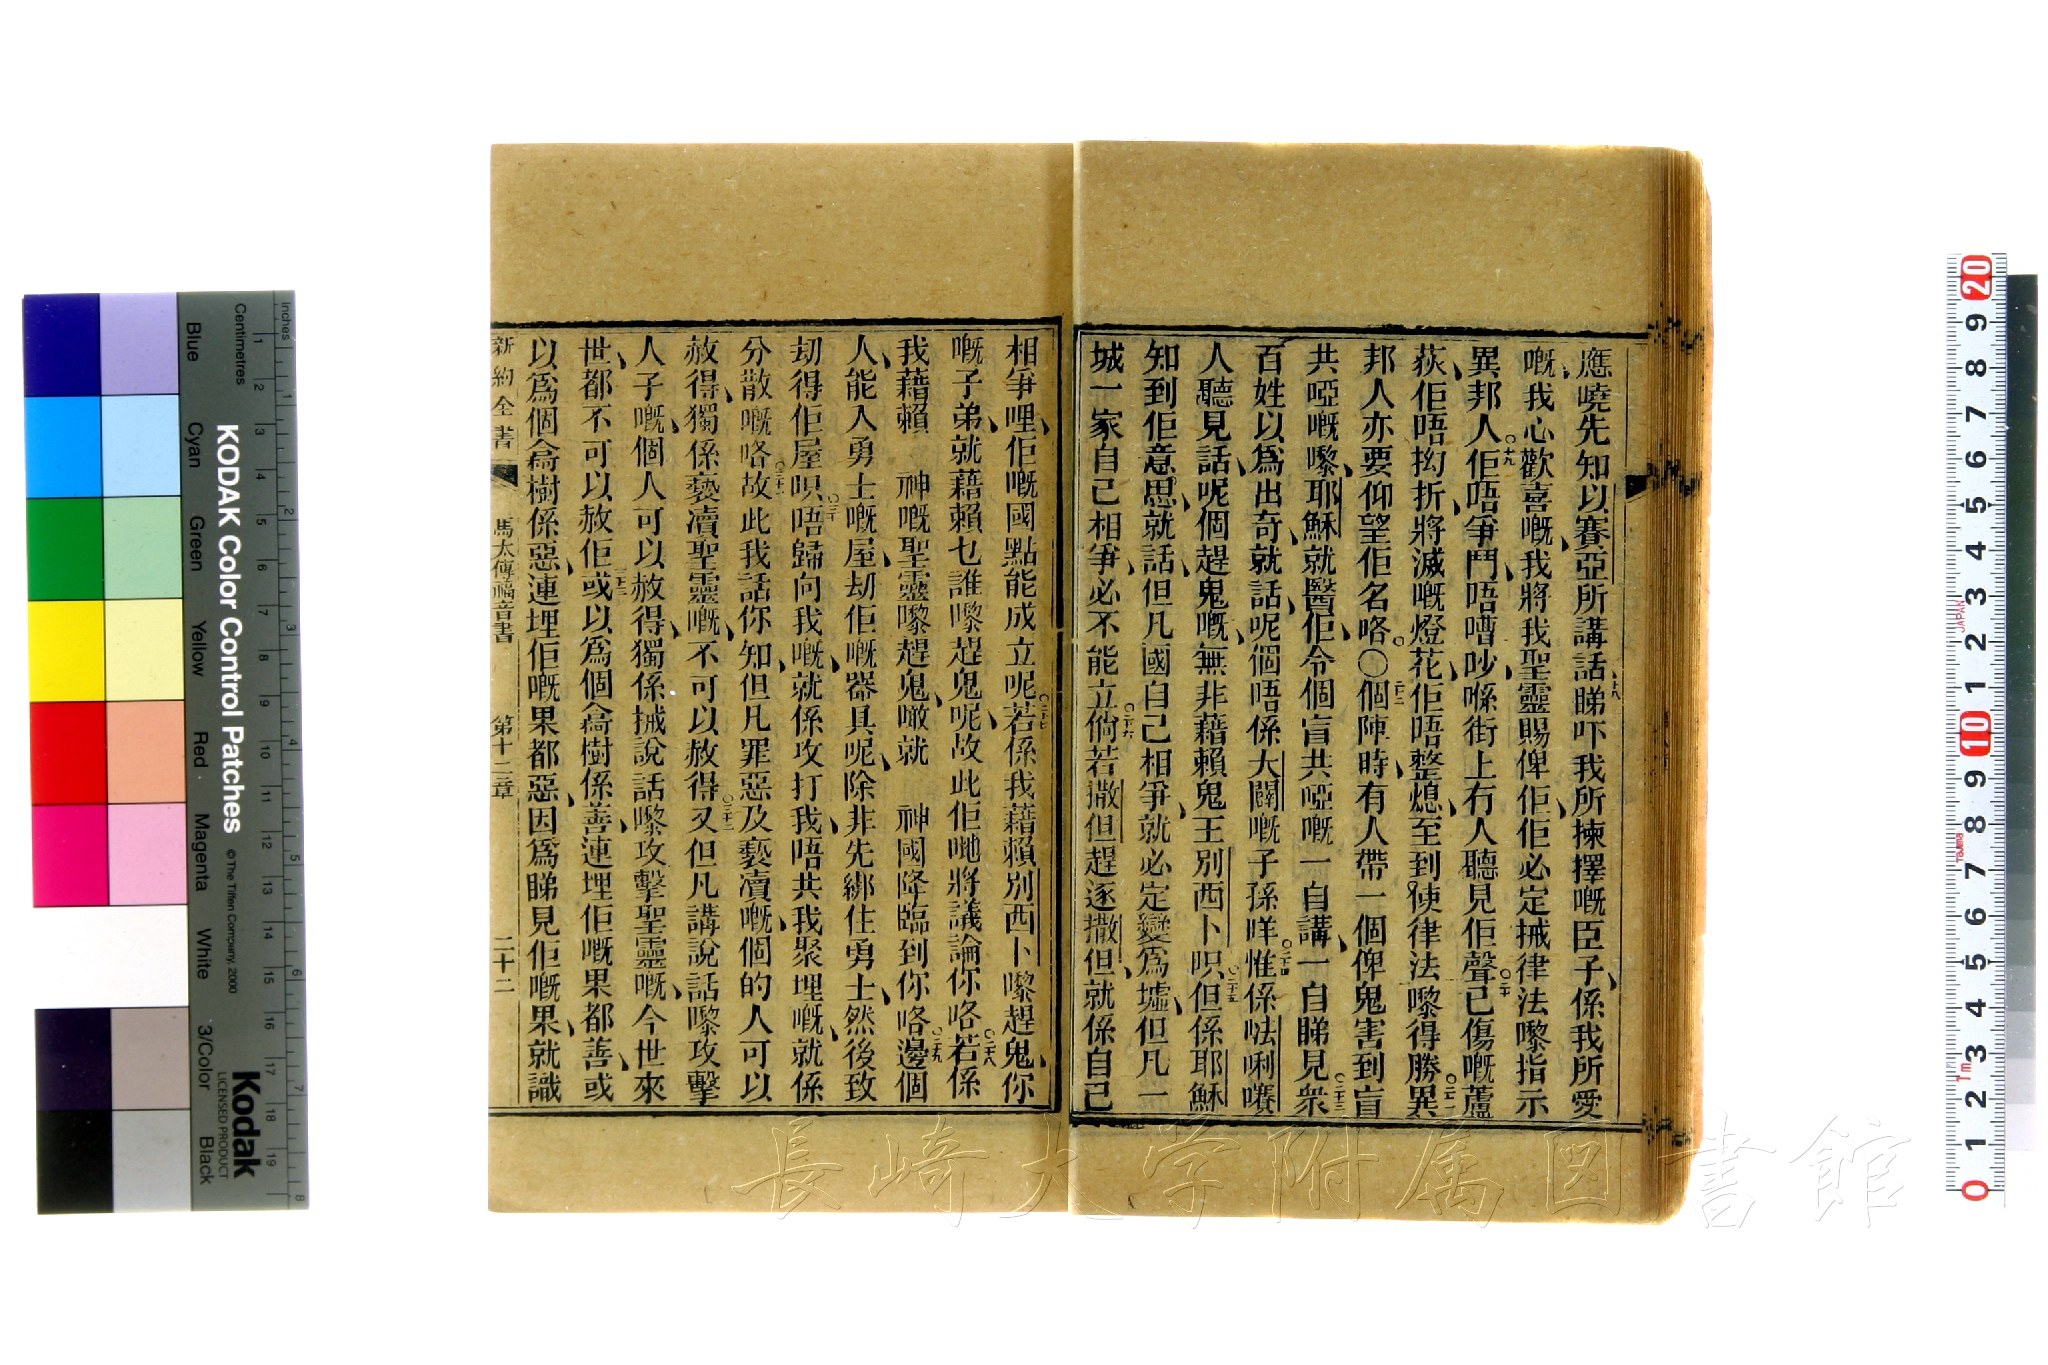 應嘵先知以賽亞所講話十八睇吓我所揀擇嘅臣子係我所愛
嘅我心歡喜嘅我將我聖靈賜俾佢佢必定掝律法嚟指示
異邦人十九佢唔爭鬥唔嘈吵喺街上冇人聽見佢聲二十已傷嘅蘆
荻佢唔拗折將滅嘅燈花佢唔整熄至到使律法嚟得勝二十一異
邦人亦要仰望佢名咯〇二十二個陣時有人帶一個俾鬼害到盲
共啞嘅嚟耶穌就醫佢令個盲共啞嘅一自講一自睇見二十三衆
百姓以爲出奇就話呢個唔係大闢嘅子孫咩二十四惟係𠵽唎㘔
人聽見話呢個趕鬼嘅無非藉賴鬼王別西卜呮二十五但係耶穌
知到佢意思就話但凡國自己相爭就必定變爲墟但凡一
城一家自己相爭必不能立二十六倘若撒但趕逐撒但就係自己
相爭哩佢嘅國點能成立呢二十七若係我藉賴別西卜嚟趕鬼你
嘅子弟就藉賴乜誰嚟趕鬼呢故此佢哋將議論你咯二十八若係
我藉賴 神嘅聖靈嚟趕鬼噉就 神國降臨到你咯二十九邊個
人能入勇士嘅屋刧佢嘅器具呢除非先綁住勇士然後致
刧得佢屋呮三十唔歸向我嘅就係攻打我唔共我聚埋嘅就係
分散嘅咯三十一故此我話你知但凡罪惡及褻瀆嘅個的人可以
赦得獨係褻瀆聖靈嘅不可以赦得三十二又但凡講說話嚟攻擊
人子嘅個人可以赦得獨係掝說話嚟攻擊聖靈嘅今世來
世都不可以赦佢三十三或以爲個㟢樹係善連埋佢嘅果都善或
以爲個㟢樹係惡連埋佢嘅果都惡因爲睇見佢嘅果就識
新約全書 馬太傳福音書 第十二章 二十二
KODAK Color Control Patches
© The Tiffen Company, 2000
Kodak
LICENSED PRODUCT
Inches
Centimetres
Blue Cyan Green Yellow Red Magenta White 3/Color Black
JAPAN
長崎大学附属図書館